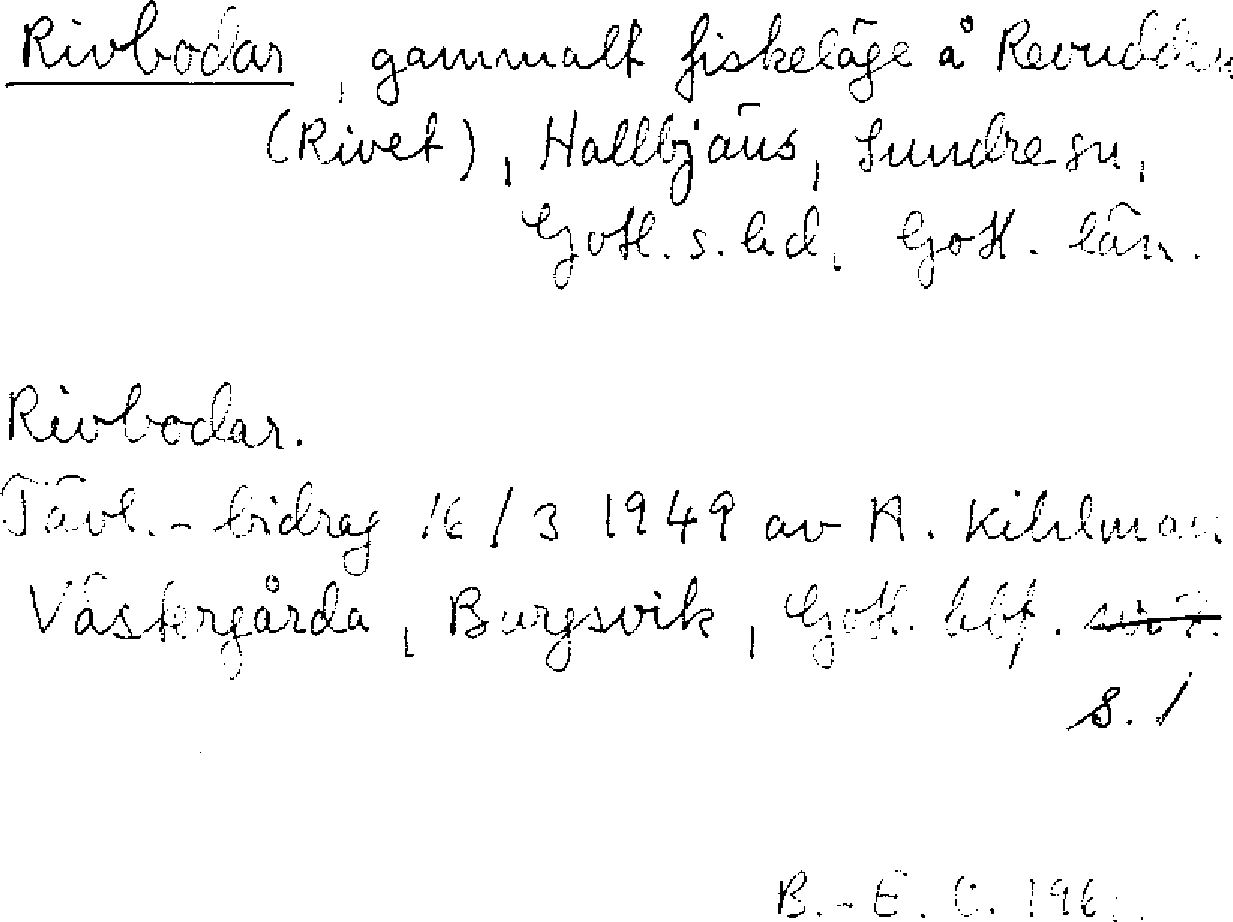 Rivbodar, gammalt fiskeläge å Revudden
(Rivet), Hallbjäns, Sundre sn,
Gotl. s. hd, Gotl. län.
Rivbodar.
Tävl.-bidrag 16/3 1949 av A. Kihlman
Västergårda, Burgsvik, Gotl. hbf.
s. 1
B.-E. C.